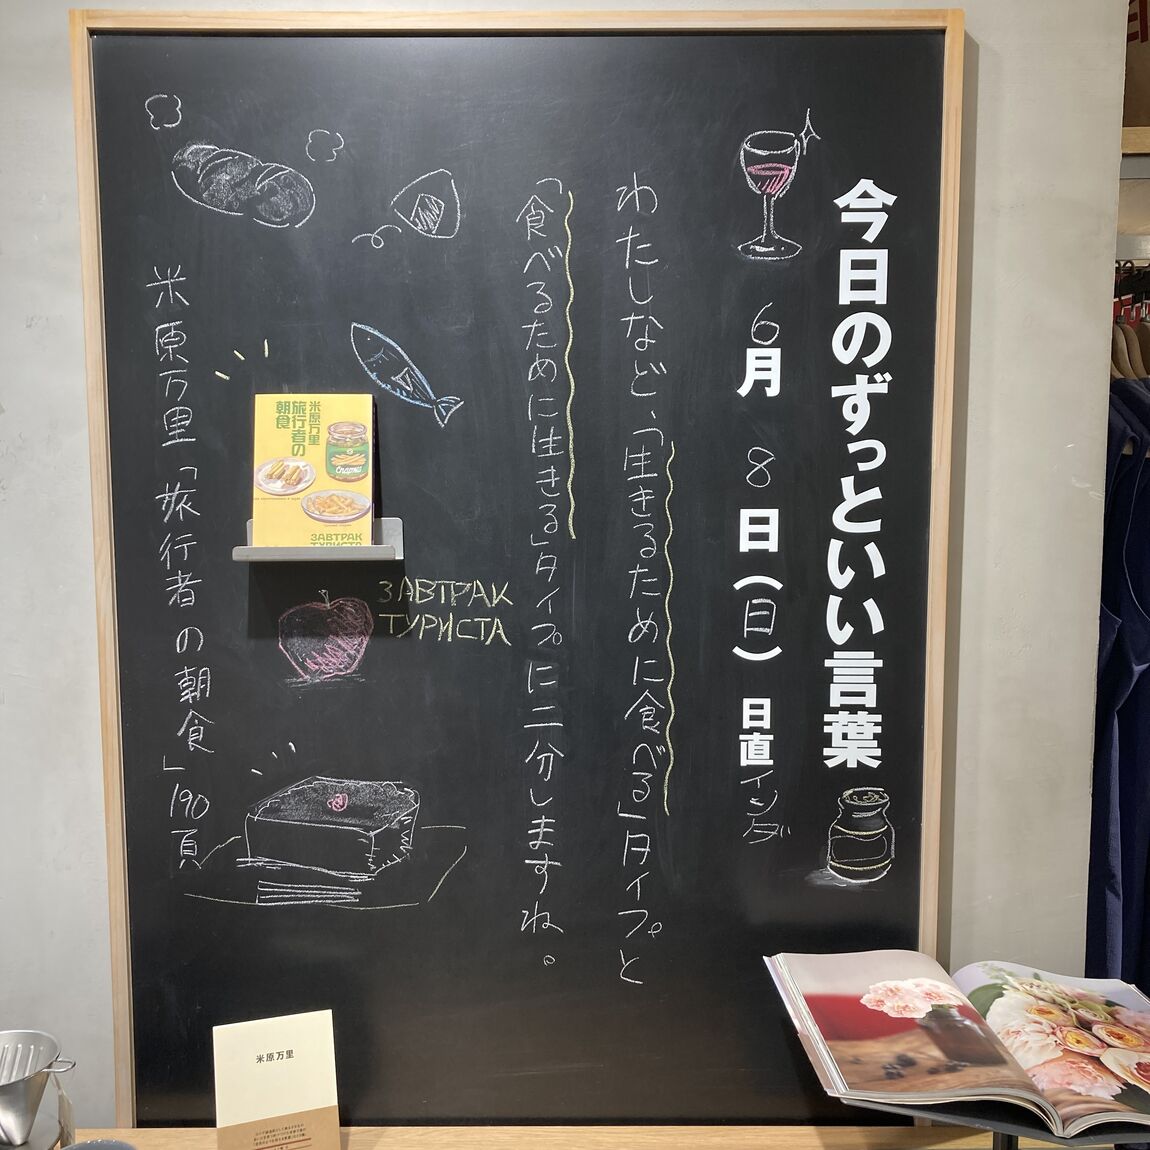 今日のずっといい言葉
6月8日(日) 日直 インダ
わたしなど、「生きるために食べる」タイプと
「食べるために生きる」タイプに二分しますね。
米原万里「旅行者の朝食」190頁
米原万里
旅行者の
朝食
ЗАВТРАК
ТУРИСТА
ЗАВТРАК
ТУРИСТА
米原万里